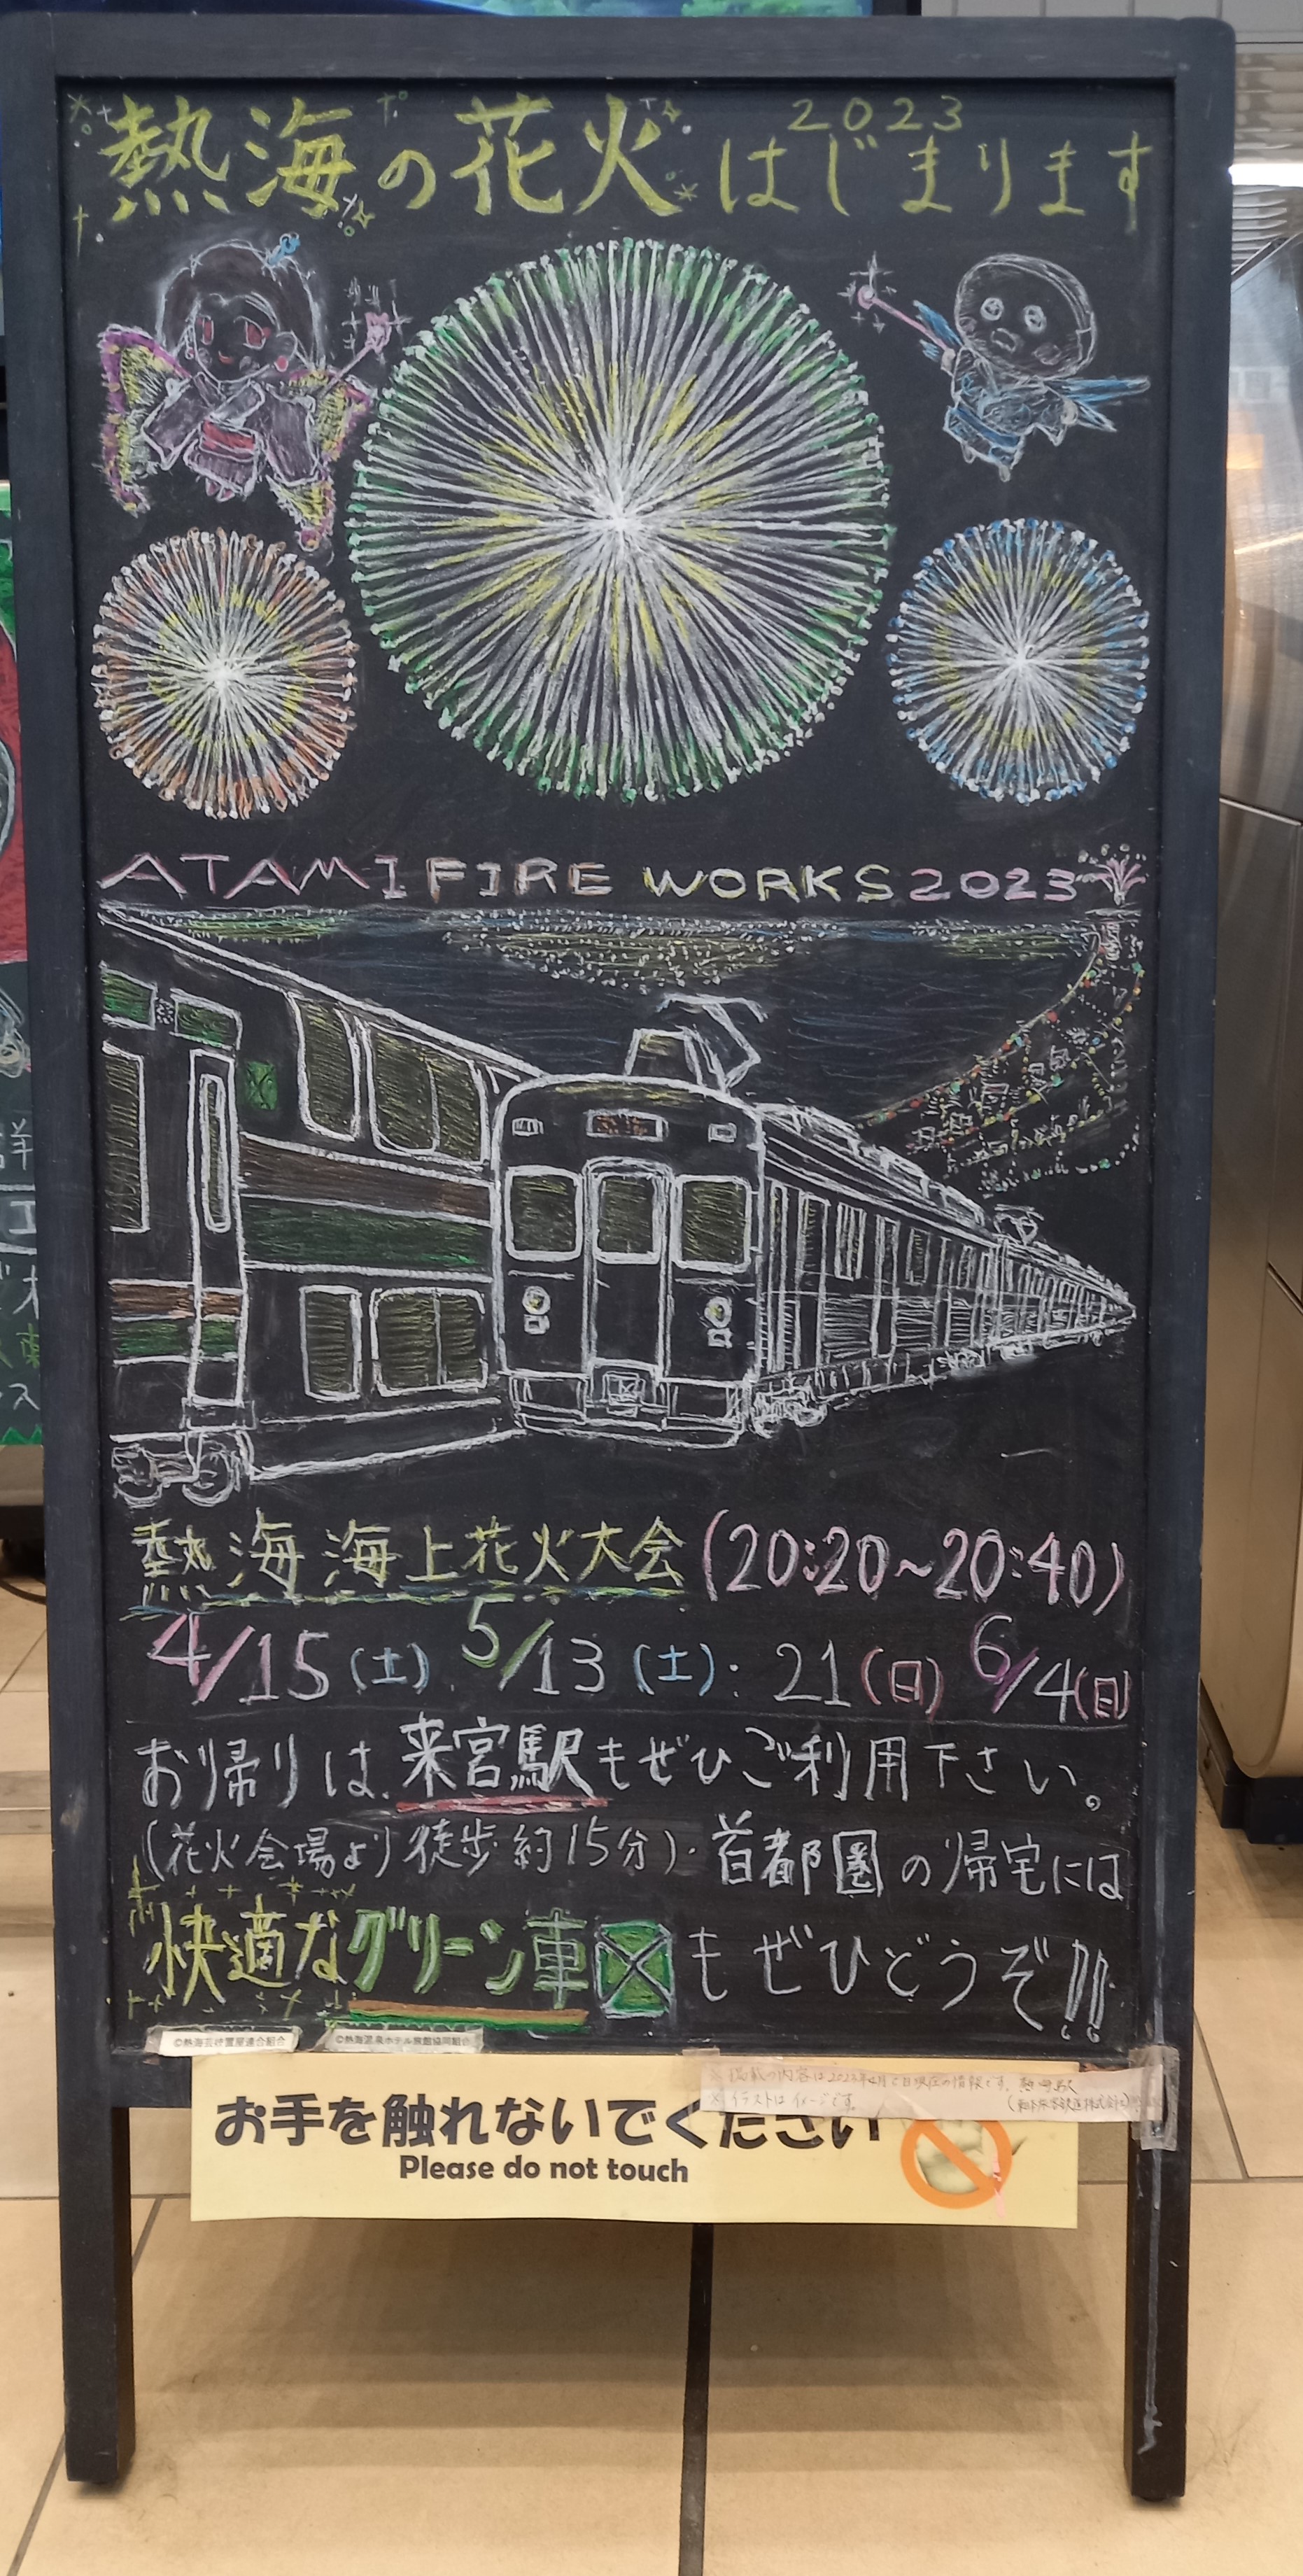 2023
熱海の花火はじまります
ATAMI FIRE WORKS 2023
熱海海上花火大会(20:20~20:40)
4/15(土). 5/13(土): 21(日) 6/4(日)
お帰りは.来宮駅もぜひご利用下さい。
(花火会場より徒歩約15分)・首都圏の帰宅には
快適なグリーン車もぜひどうぞ!!
©熱海芸妓置屋連合組合
©熱海温泉ホテル旅館協同組合
※イラストはイメージです。
お手を触れないでください
Please do not touch